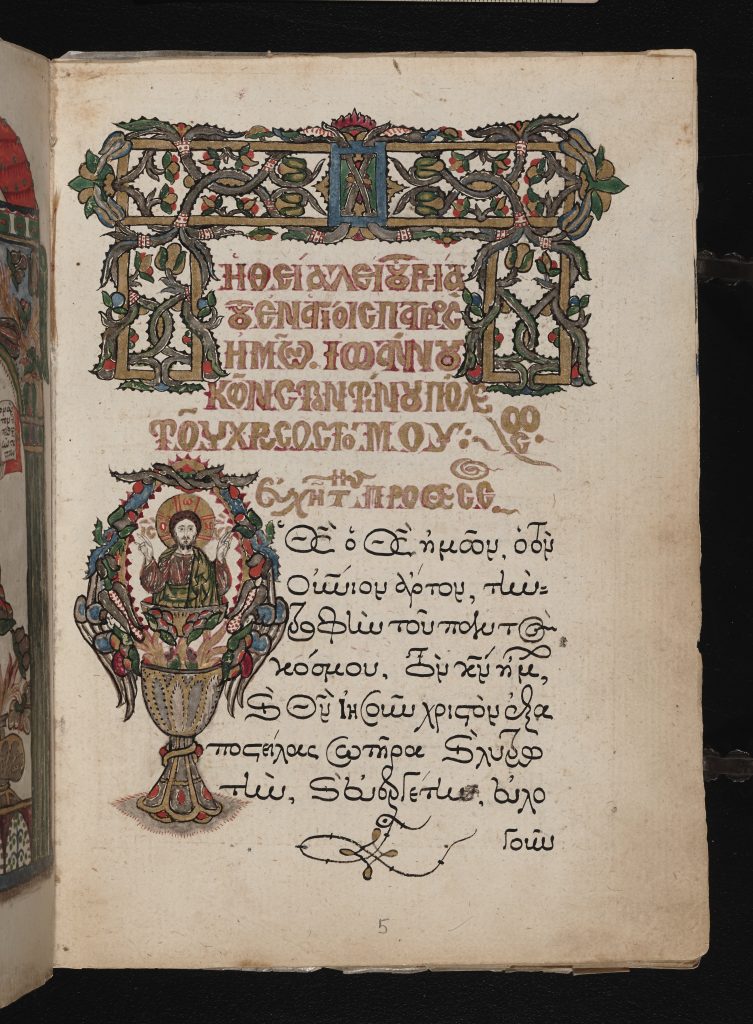 Ἡ ΘΕΊΑ ΛΕΙΤΟΥΡΓΊΑ
ΤΟΥ ΕΝ ἉΓΊΟΙΣ ΠΑΤΡῸΣ
ἩΜῶΝ. ἸΩΆΝΝΟΥ
ΚΩΝΣΤΑΝΤΙΝΟΥΠΌΛΕ
ως.
ΤΟῦ ΧΡΥΣΟΣΤΌΜΟΥ:
Εὐχὴ τῆς ΠΡΟΘΕΣΕ
ὉΘΣ̀ ὁ ΘΣ̀ ἡμῶν, ὁ τὸν
οὐνιον ἄρτον, τὴν
τροφὴν τοῦ παντὸς
κόσμου, τὸν κν̀ ἡμ̃,
καὶ Θν̀ Ἰησοῦν χριστὸν ἐξα
ποστείλας σωτῆρα καὶ λυτρω
τὴν, καὶ εὐεργέτην, εὐλο
γοῦν
5